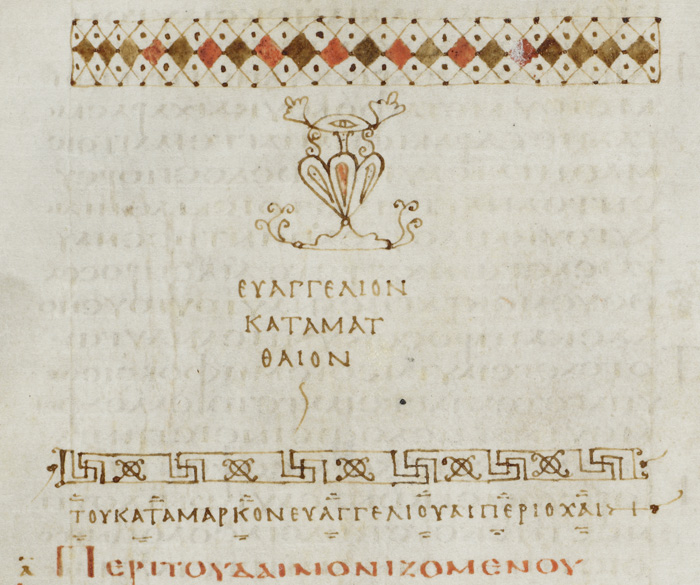 ΕΥΑΓΓΕΛΙΟΝ
ΚΑΤΑΜΑΤ
ΘΑΙΟΝ
ΤΟΥΚΑΤΑΜΑΡΚΟΝΕΥΑΓΓΕΛΙΟΥΑΙΠΕΡΙΟΧΑΙ
Α ΠΕΡΙΤΟΥΔΑΙΜΟΝΙΖΟΜΕΝΟΥ